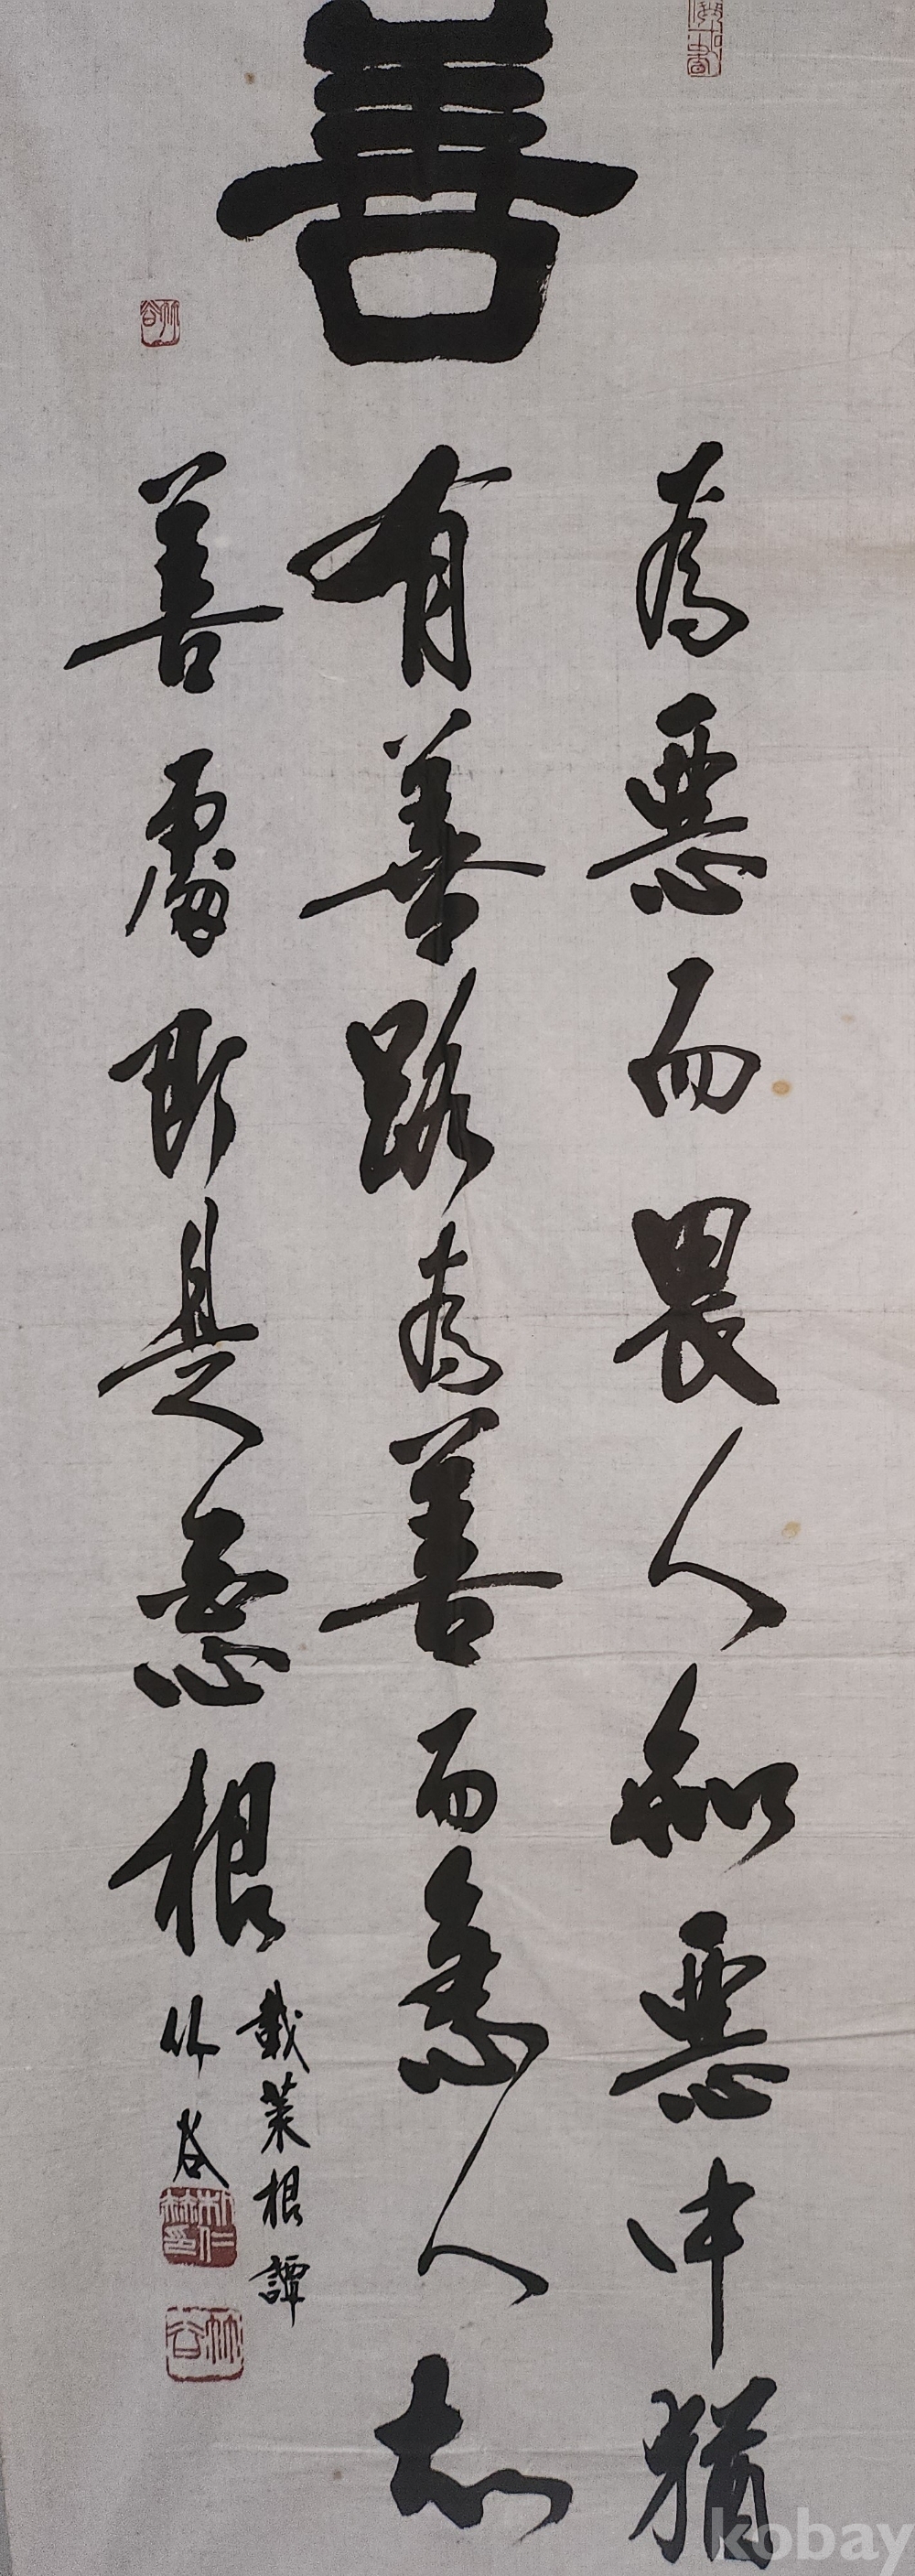 善
為惡而畏人知惡中猶
有善路為善而急人知
善處即是惡根
載菜根譚
竹谷
竹谷
竹谷
kobay